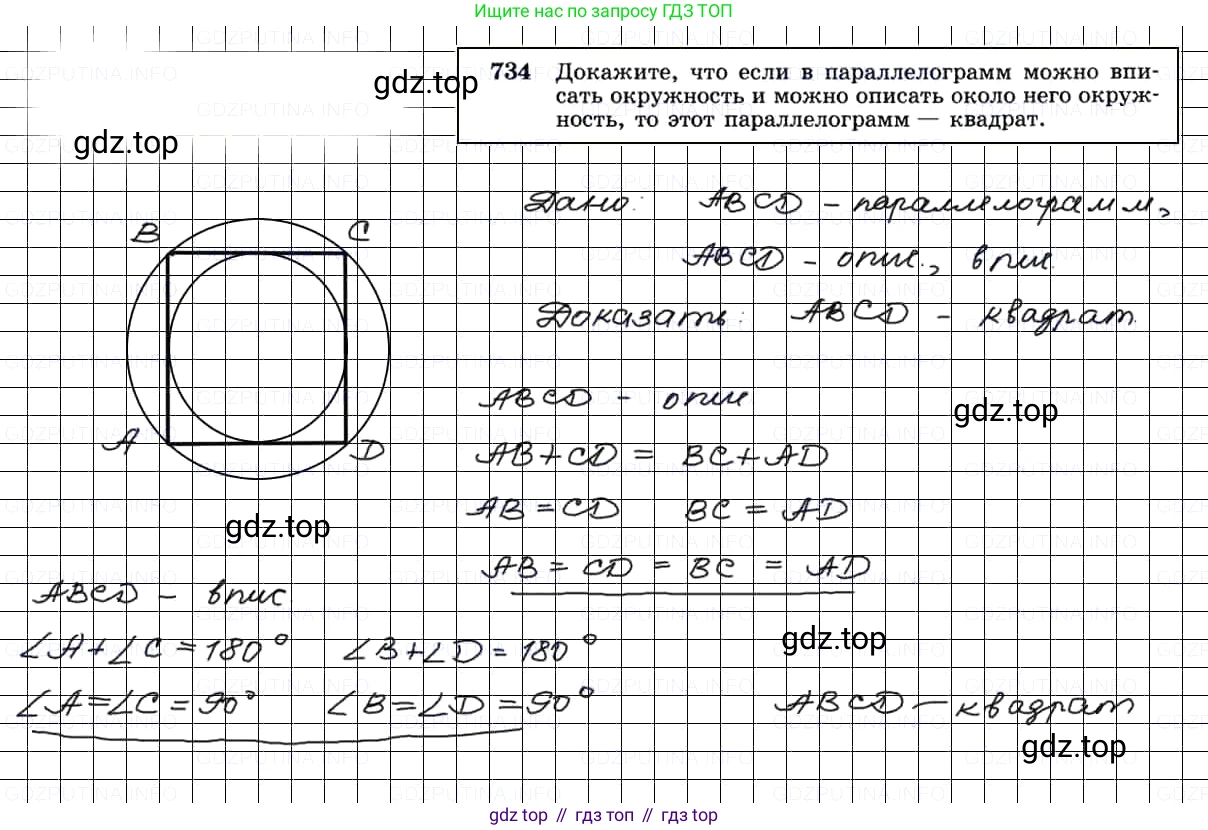 Ищите нас по запросу ГДЗ ТОП
734 Докажите, что если в параллелограмм можно впи-
сать окружность и можно описать около него окруж-
ность, то этот параллелограмм — квадрат.
gdz.top
gdz.top
Дано: ABCD - параллелограмм,
ABCD - опис., впис.
Доказать: ABCD - квадрат.
B C
A D
ABCD - опис
gdz.top
AB+CD = BC+AD
AB = CD BC = AD
gdz.top
AB = CD = BC = AD
ABCD - впис.
∠A+∠C = 180° ∠B+∠D = 180°
gdz.top
∠A=∠C = 90° ∠B=∠D = 90°
ABCD - квадрат
gdz.top
gdz top // гдз топ // гдз top